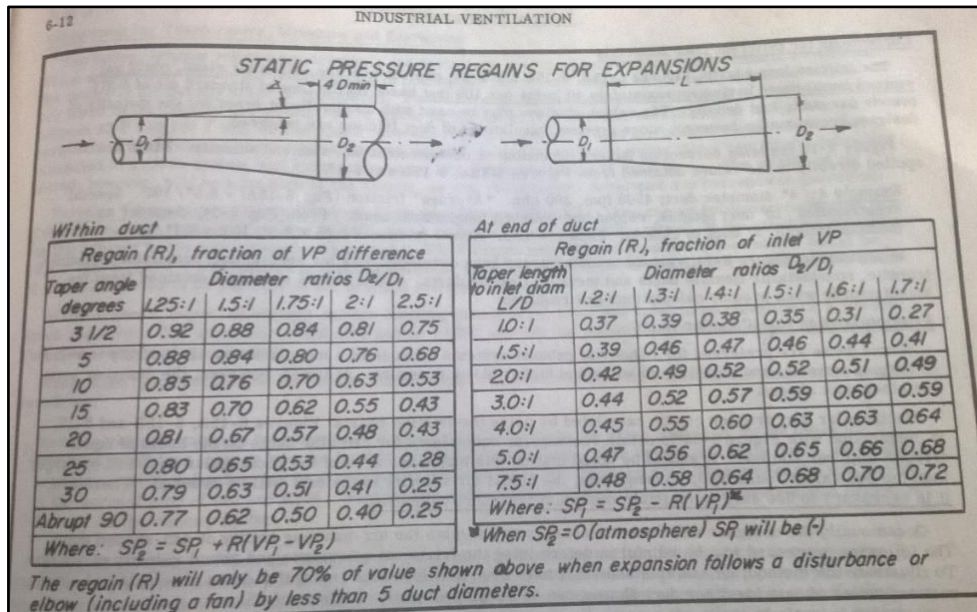 6-12
INDUSTRIAL VENTILATION
STATIC PRESSURE REGAINS FOR EXPANSIONS
4 Dmin
L
D₁
D₂
D₁
D₂
Within duct
Regain (R), fraction of VP difference
Taper angle degrees
Diameter ratios D₂/D₁
1.25:1 1.5:1 1.75:1 2:1 2.5:1
3 1/2 0.92 0.88 0.84 0.81 0.75
5 0.88 0.84 0.80 0.76 0.68
10 0.85 0.76 0.70 0.63 0.53
15 0.83 0.70 0.62 0.55 0.43
20 0.81 0.67 0.57 0.48 0.43
25 0.80 0.65 0.53 0.44 0.28
30 0.79 0.63 0.51 0.41 0.25
Abrupt 90 0.77 0.62 0.50 0.40 0.25
Where: SP₂ = SP₁ + R(VP₁ - VP₂)
At end of duct
Regain (R), fraction of inlet VP
Taper length to inlet diam L/D
Diameter ratios D₂/D₁
1.2:1 1.3:1 1.4:1 1.5:1 1.6:1 1.7:1
1.0:1 0.37 0.39 0.38 0.35 0.31 0.27
1.5:1 0.39 0.46 0.47 0.46 0.44 0.41
2.0:1 0.42 0.49 0.52 0.52 0.51 0.49
3.0:1 0.44 0.52 0.57 0.59 0.60 0.59
4.0:1 0.45 0.55 0.60 0.63 0.63 0.64
5.0:1 0.47 0.56 0.62 0.65 0.66 0.68
7.5:1 0.48 0.58 0.64 0.68 0.70 0.72
Where: SP₁ = SP₂ - R(VP₁)*
*When SP₂=0 (atmosphere) SP₁ will be (-)
The regain (R) will only be 70% of value shown above when expansion follows a disturbance or
elbow (including a fan) by less than 5 duct diameters.